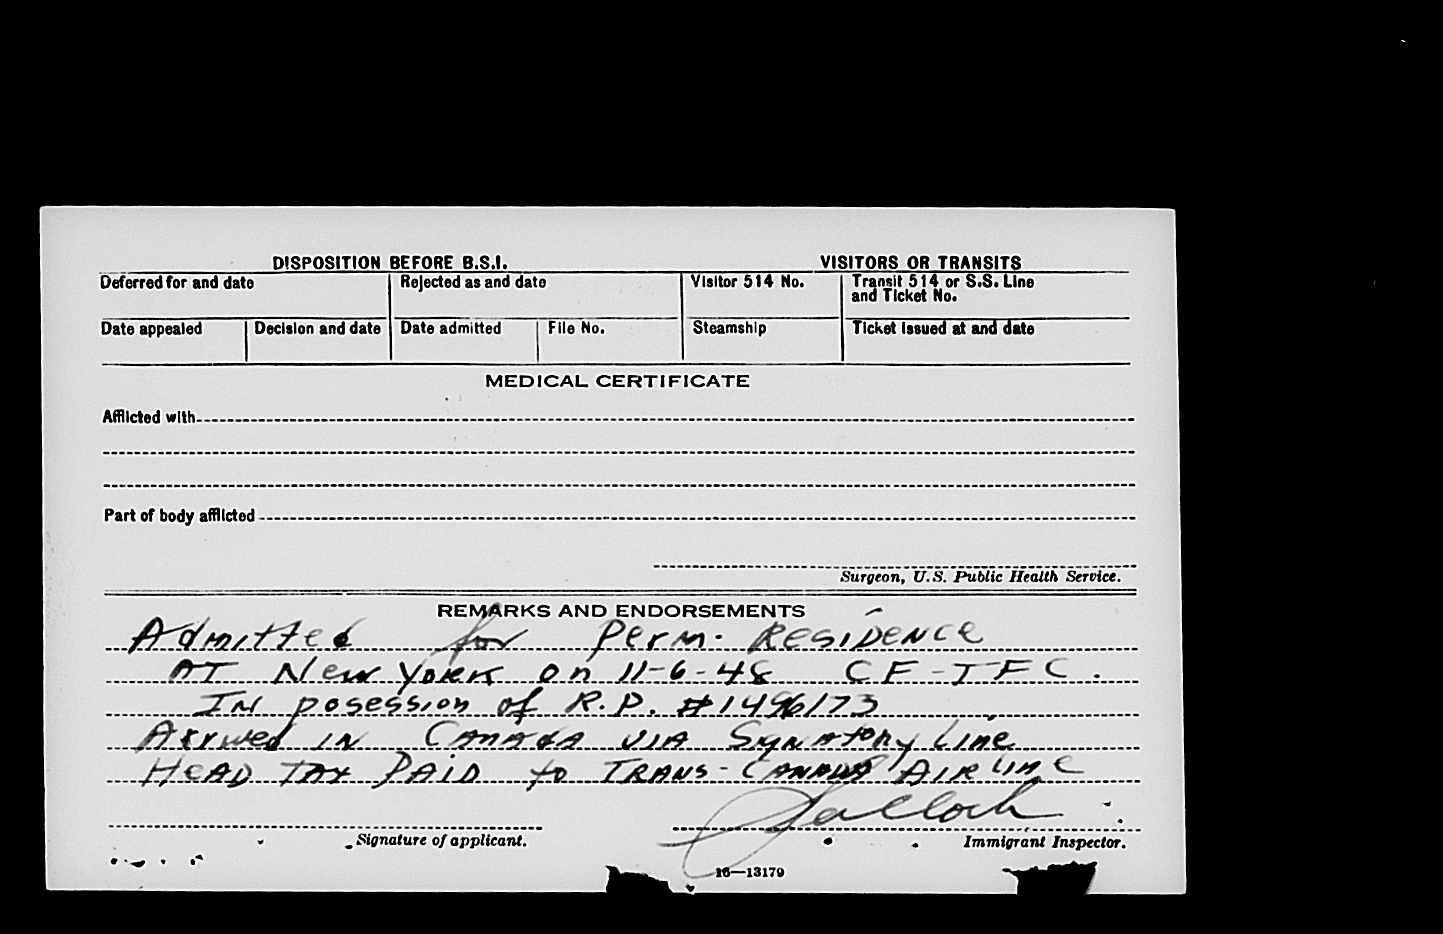 DISPOSITION BEFORE B.S.I. VISITORS OR TRANSITS
Deferred for and date Rejected as and date Visitor 514 No. Transit 514 or S.S. Line
and Ticket No.
Date appealed Decision and date Date admitted File No. Steamship Ticket issued at and date
MEDICAL CERTIFICATE
Afflicted with
Part of body afflicted
Surgeon, U.S. Public Health Service.
REMARKS AND ENDORSEMENTS
Admitted for Perm. Residence
AT New York on 11-6-48 CF-TFC.
In posession of R.P. #1496173
Arrived in Canada via Signatory Line
Head Tax Paid to Trans-Canada Airline
Signature of applicant. Immigrant Inspector.
16—13179